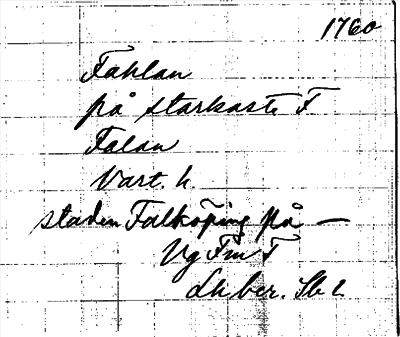 1760
Fahlan
på starkaste F
Falan
Vart. h.
staden Falköping på —
Vg Fm F
Lh ber.